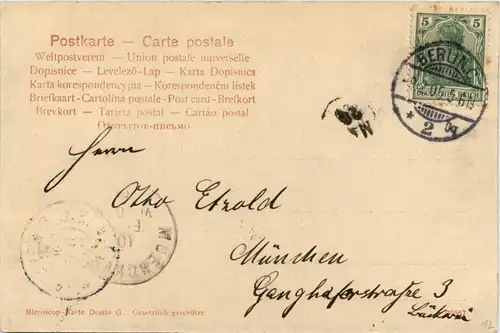 Postkarte – Carte postale
Weltpostverein – Union postale universelle
Dopisnice – Levelező-Lap – Karta Dopisnica
Karta korespondencyjna – Korespondenční listek
Briefkaart - Cartolina postale - Post card - Brefkort
Brevkort – Tarjeta postal – Cartão postal
Открытое-письмо
5 5
DEUTSCHES REICH
BERLIN
* 2
Herrn
Otto Etzold
München
Ganghoferstraße 3
Microscop-Karte Dessin G. Gesetzlich geschützt.